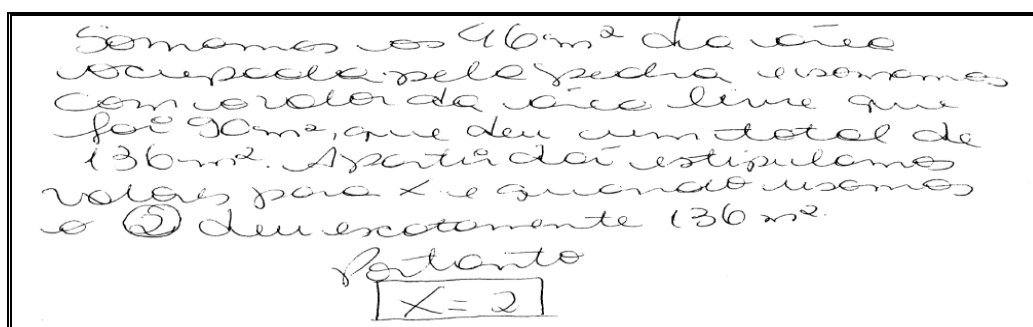 Somamos os 46m² da área
ocupada pela pedra e somamos
com o valor da área livre que
foi 90m², que deu um total de
136m². Apartir daí estipulamos
valores para x e quando usamos
o 2 deu exatamente 136m².
Portanto
X = 2